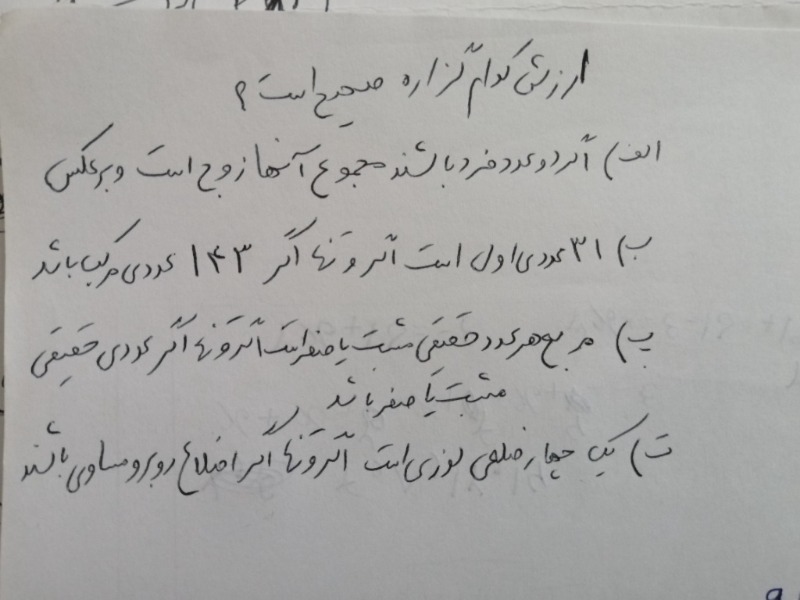 ارزش کدام گزاره صحیح است ؟
الف) اگر دو عدد فرد باشند مجموع آنها زوج است و برعکس
ب) ۳۱ عددی اول است اگر و تنها اگر ۱۴۳ عددی مرکب باشد
پ) مربع هر عدد حقیقی مثبت یا صفر است اگر و تنها اگر عددی حقیقی
مثبت یا صفر باشد
ت) یک چهارضلعی لوزی است اگر و تنها اگر اضلاع روبرو مساوی باشند